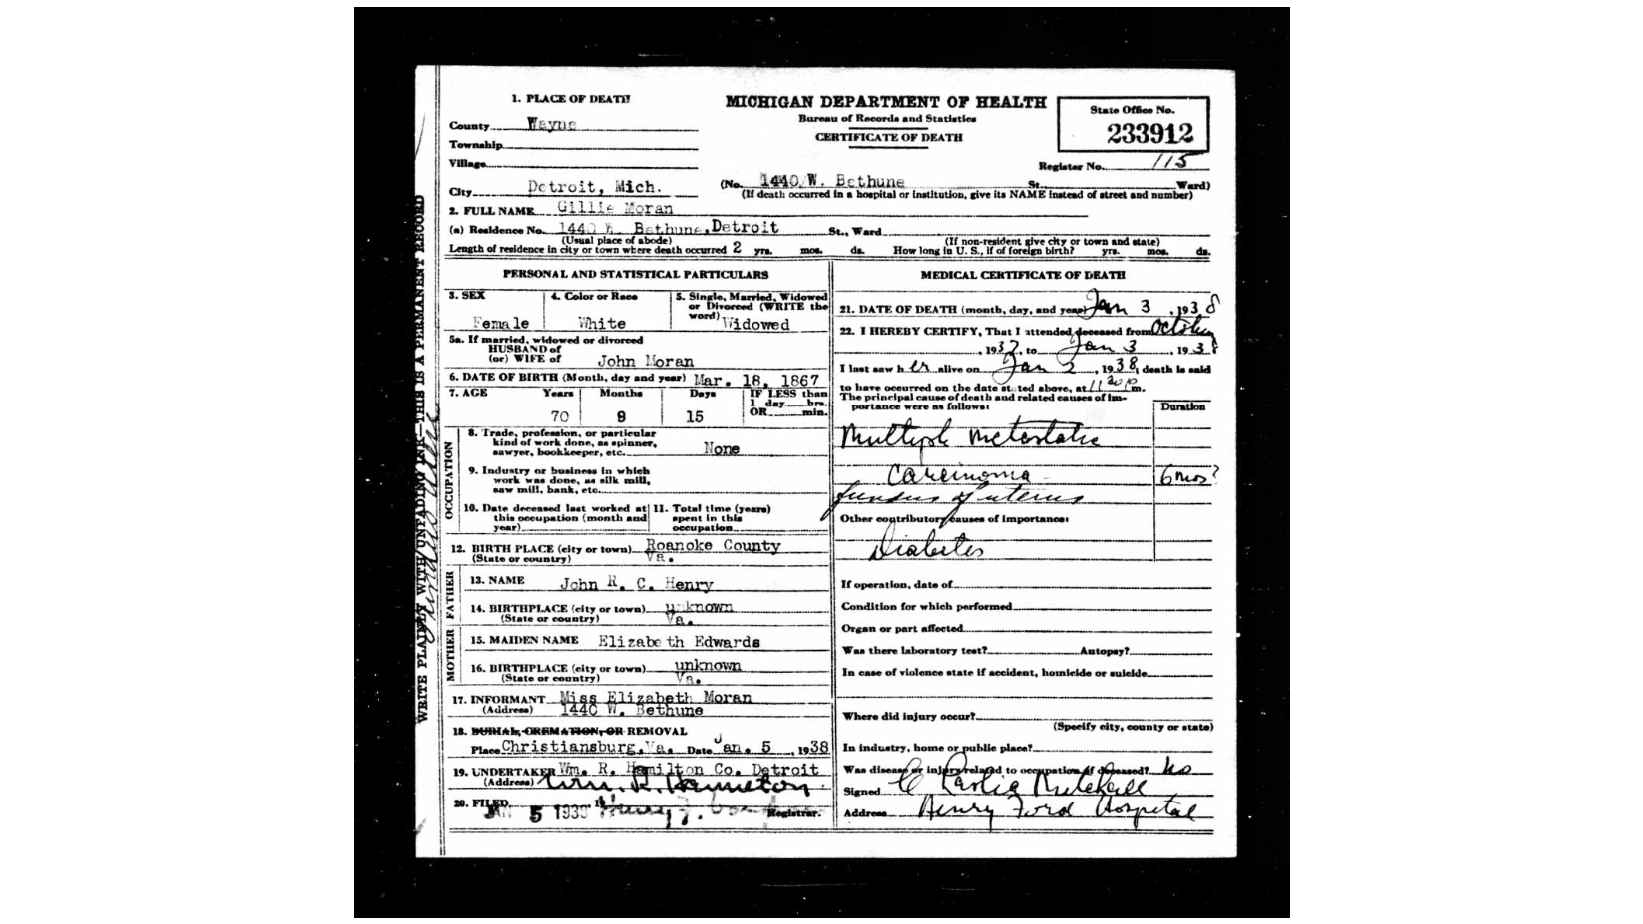 1. PLACE OF DEATH
County Wayne
Township
Village
City Detroit, Mich.
MICHIGAN DEPARTMENT OF HEALTH
Bureau of Records and Statistics
CERTIFICATE OF DEATH
State Office No.
233912
Register No. 115
(No. 1440 W. Bethune St. Ward)
(If death occurred in a hospital or institution, give its NAME instead of street and number)
2. FULL NAME Gillie Moran
(a) Residence No. 1440 W. Bethune, Detroit St., Ward
(Usual place of abode) (If non-resident give city or town and state)
Length of residence in city or town where death occurred 2 yrs. mos. ds. How long in U. S., if of foreign birth? yrs. mos. ds.
WRITE PLAINLY WITH UNFADING INK—THIS IS A PERMANENT RECORD
PERSONAL AND STATISTICAL PARTICULARS
3. SEX Female
4. Color or Race White
5. Single, Married, Widowed
or Divorced (WRITE the
word) Widowed
5a. If married, widowed or divorced
HUSBAND of
(or) WIFE of John Moran
6. DATE OF BIRTH (Month, day and year) Mar. 18, 1867
7. AGE Years Months Days IF LESS than
1 day hrs.
OR min.
70 9 15
OCCUPATION
8. Trade, profession, or particular
kind of work done, as spinner,
sawyer, bookkeeper, etc. None
9. Industry or business in which
work was done, as silk mill,
saw mill, bank, etc.
10. Date deceased last worked at
this occupation (month and
year)
11. Total time (years)
spent in this
occupation
12. BIRTH PLACE (city or town) Roanoke County
(State or country) Va.
FATHER
13. NAME John R. C. Henry
14. BIRTHPLACE (city or town) unknown
(State or country) Va.
MOTHER
15. MAIDEN NAME Elizabeth Edwards
16. BIRTHPLACE (city or town) unknown
(State or country) Va.
17. INFORMANT Miss Elizabeth Moran
(Address) 1440 W. Bethune
18. BURIAL, CREMATION, OR REMOVAL
Place Christiansburg, Va. Date Jan. 5, 1938
19. UNDERTAKER Wm. R. Hamilton Co. Detroit
(Address) Wm. R. Hamilton
20. FILED JAN 5 193 Henry F. Registrar.
MEDICAL CERTIFICATE OF DEATH
21. DATE OF DEATH (month, day, and year) Jan 3, 1938
22. I HEREBY CERTIFY, That I attended deceased from October
, 1937, to Jan 3, 1938
I last saw her alive on Jan 2, 1938, death is said
to have occurred on the date stated above, at m.
The principal cause of death and related causes of im-
portance were as follows: Duration
Multiple metastatic
Carcinoma 6 mos?
fundus of uterus
Other contributory causes of importance:
Diabetes
If operation, date of
Condition for which performed
Organ or part affected
Was there laboratory test? Autopsy?
In case of violence state if accident, homicide or suicide
Where did injury occur?
(Specify city, county or state)
In industry, home or public place?
Was disease or injury related to occupation of deceased? No
Signed C Leslie Mitchell
Address Henry Ford Hospital